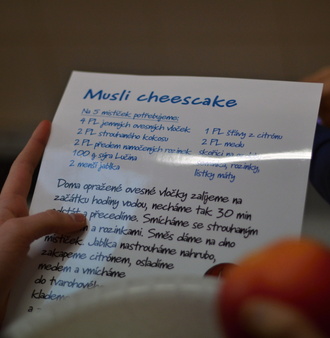 Musli cheescake
Na 5 mističek potřebujeme:
4 PL jemných ovesných vloček
2 PL strouhaného kokosu
2 PL předem namočených rozinek
100 g sýra Lučina
2 menší jablka
1 PL šťávy z citrónu
2 PL medu
skořici na
rozinky,
lístky máty
Doma opražené ovesné vločky zalijeme na
začátku hodiny vodou, necháme tak 30 min
a přecedíme. Smícháme se strouhaným
a rozinkami. Směs dáme na dno
mističek. Jablka nastrouháme nahrubo,
zakapeme citrónem, osladíme
medem a vmícháme
do tvarohové
kladem